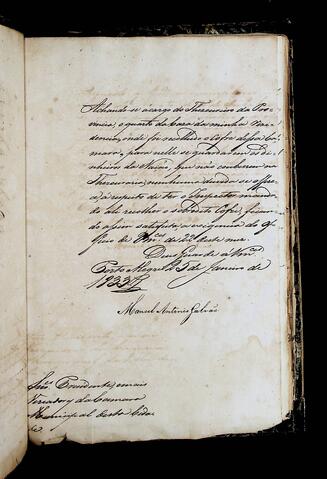 Achando-se a cargo do Thesoureiro da Pro-
vincia, o quarto da Caza da minha rezi-
dencia, onde foi recolhido o Cofre dessa Ca-
mara, para nelle se guardarem Di-
nheiros da Nação, que não couberem na
Thesouraria, nenhuma duvida se offre-
ce a respeito de ter o Inspector manda-
do ali recolher o sobredito Cofre, fican-
do assim satisfeita a exigencia do Of-
ficio de V.mces de 22 deste mez.
Deos Guarde a V.mces
Porto Alegre 25 de Janeiro de
1833
Manoel Antonio Galvão
Snres Presidente, e mais
Vereadores da Camara
Municipal desta Cida-
de